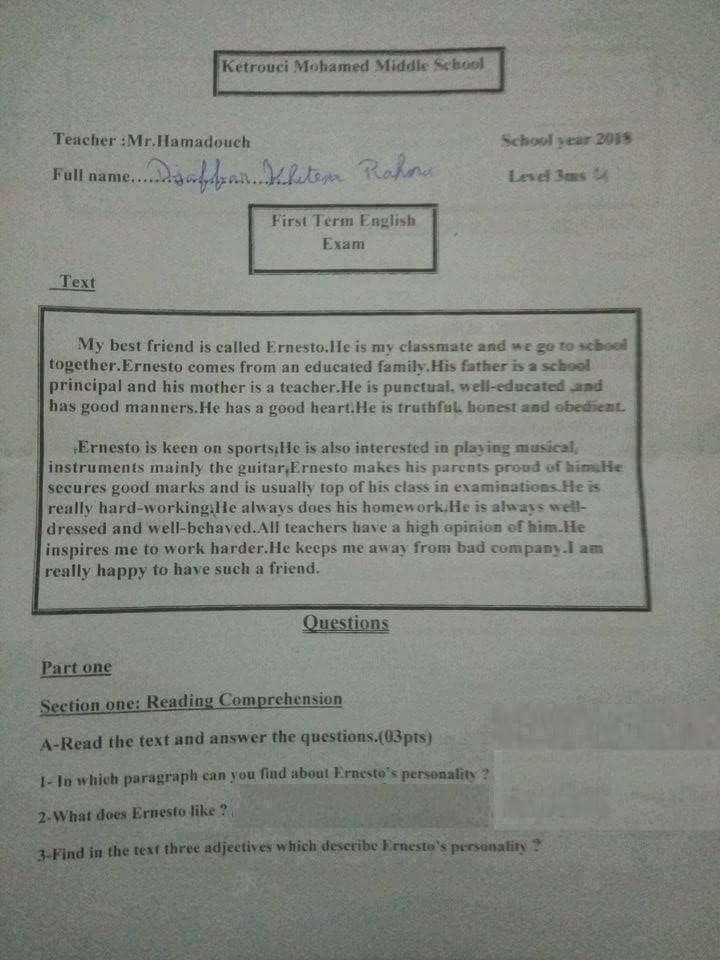 Ketrouci Mohamed Middle School
Teacher :Mr.Hamadouch
School year 2018
Full name..................................
Level 3ms
First Term English
Exam
Text
My best friend is called Ernesto.He is my classmate and we go to school
together.Ernesto comes from an educated family.His father is a school
principal and his mother is a teacher.He is punctual, well-educated ,and
has good manners.He has a good heart.He is truthful, honest and obedient.
Ernesto is keen on sports.He is also interested in playing musical
instruments mainly the guitar.Ernesto makes his parents proud of him.He
secures good marks and is usually top of his class in examinations.He is
really hard-working.He always does his homework.He is always well-
dressed and well-behaved.All teachers have a high opinion of him.He
inspires me to work harder.He keeps me away from bad company.I am
really happy to have such a friend.
Questions
Part one
Section one: Reading Comprehension
A-Read the text and answer the questions.(03pts)
1- In which paragraph can you find about Ernesto's personality ?
2-What does Ernesto like ?
3-Find in the text three adjectives which describe Ernesto's personality ?